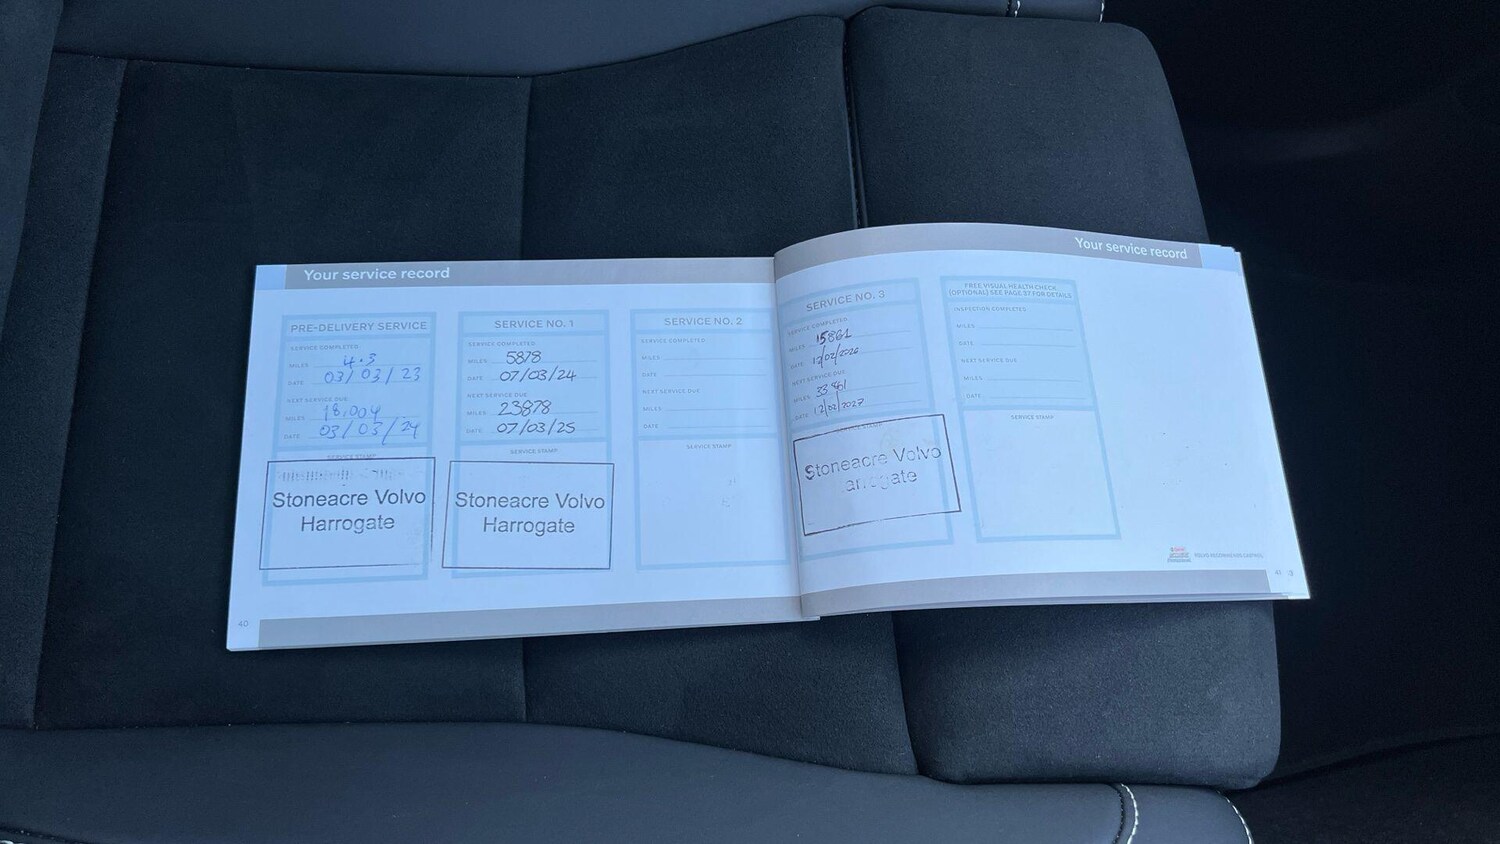 Your service record
PRE-DELIVERY SERVICE
SERVICE COMPLETED
MILES 4.3
DATE 03/03/23
NEXT SERVICE DUE
MILES 18,004
DATE 03/03/24
SERVICE STAMP
Stoneacre Volvo
Harrogate
SERVICE NO. 1
SERVICE COMPLETED
MILES 5878
DATE 07/03/24
NEXT SERVICE DUE
MILES 23878
DATE 07/03/25
SERVICE STAMP
Stoneacre Volvo
Harrogate
SERVICE NO. 2
SERVICE COMPLETED
MILES
DATE
NEXT SERVICE DUE
MILES
DATE
SERVICE STAMP
40
Your service record
SERVICE NO. 3
SERVICE COMPLETED
MILES 15861
DATE 12/02/2026
NEXT SERVICE DUE
MILES 33861
DATE 12/02/2027
SERVICE STAMP
Stoneacre Volvo
arrogate
FREE VISUAL HEALTH CHECK
(OPTIONAL) SEE PAGE 37 FOR DETAILS
INSPECTION COMPLETED
MILES
DATE
NEXT SERVICE DUE
MILES
DATE
SERVICE STAMP
VOLVO RECOMMENDS CASTROL
41